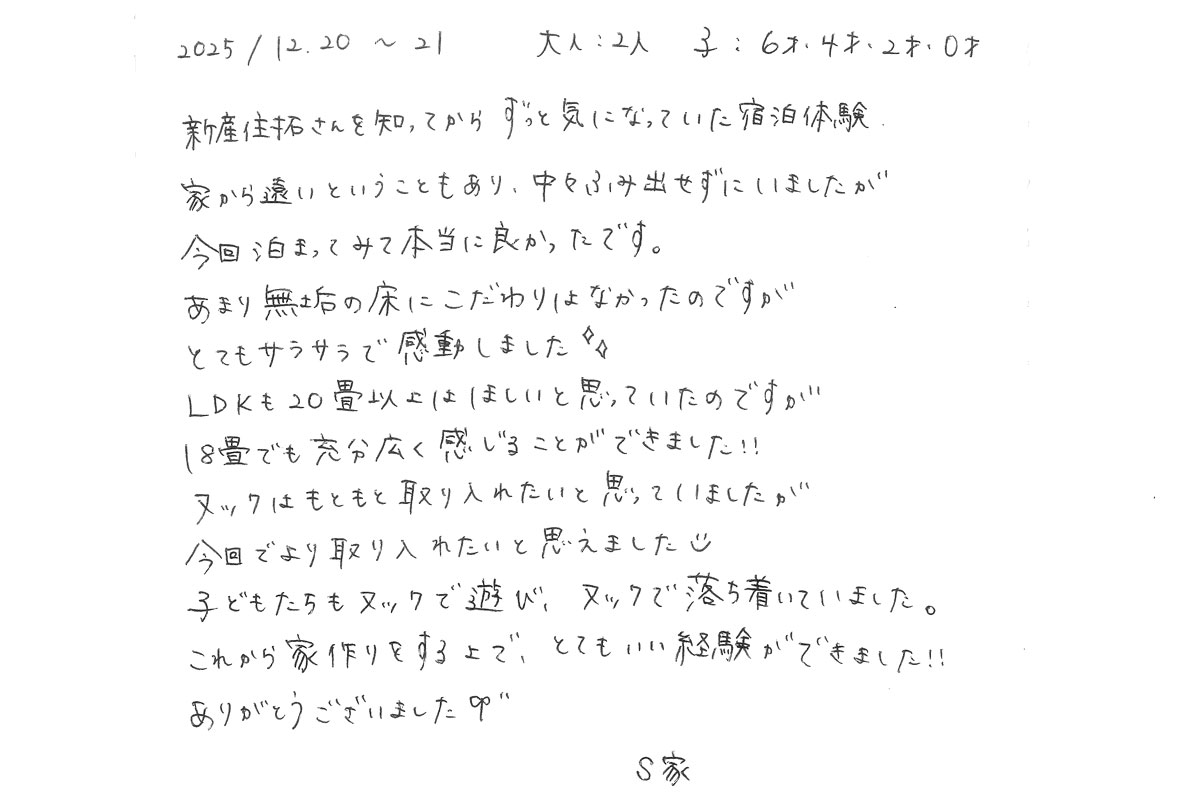 2025/12.20 〜 21　大人:2人　子:6才・4才・2才・0才
新産住拓さんを知ってからずっと気になっていた宿泊体験
家から遠いということもあり、中々ふみ出せずにいましたが
今回泊まってみて本当に良かったです。
あまり無垢の床にこだわりはなかったのですが
とてもサラサラで感動しました✧✧
LDKも20畳以上はほしいと思っていたのですが
18畳でも充分広く感じることができました!!
ヌックはもともと取り入れたいと思っていましたが
今回でより取り入れたいと思えました☺
子どもたちもヌックで遊び、ヌックで落ち着いていました。
これから家作りをする上で、とてもいい経験ができました!!
ありがとうございました
S家